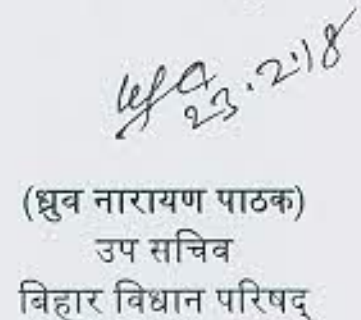 23.2.18
(ध्रुव नारायण पाठक)
उप सचिव
बिहार विधान परिषद्